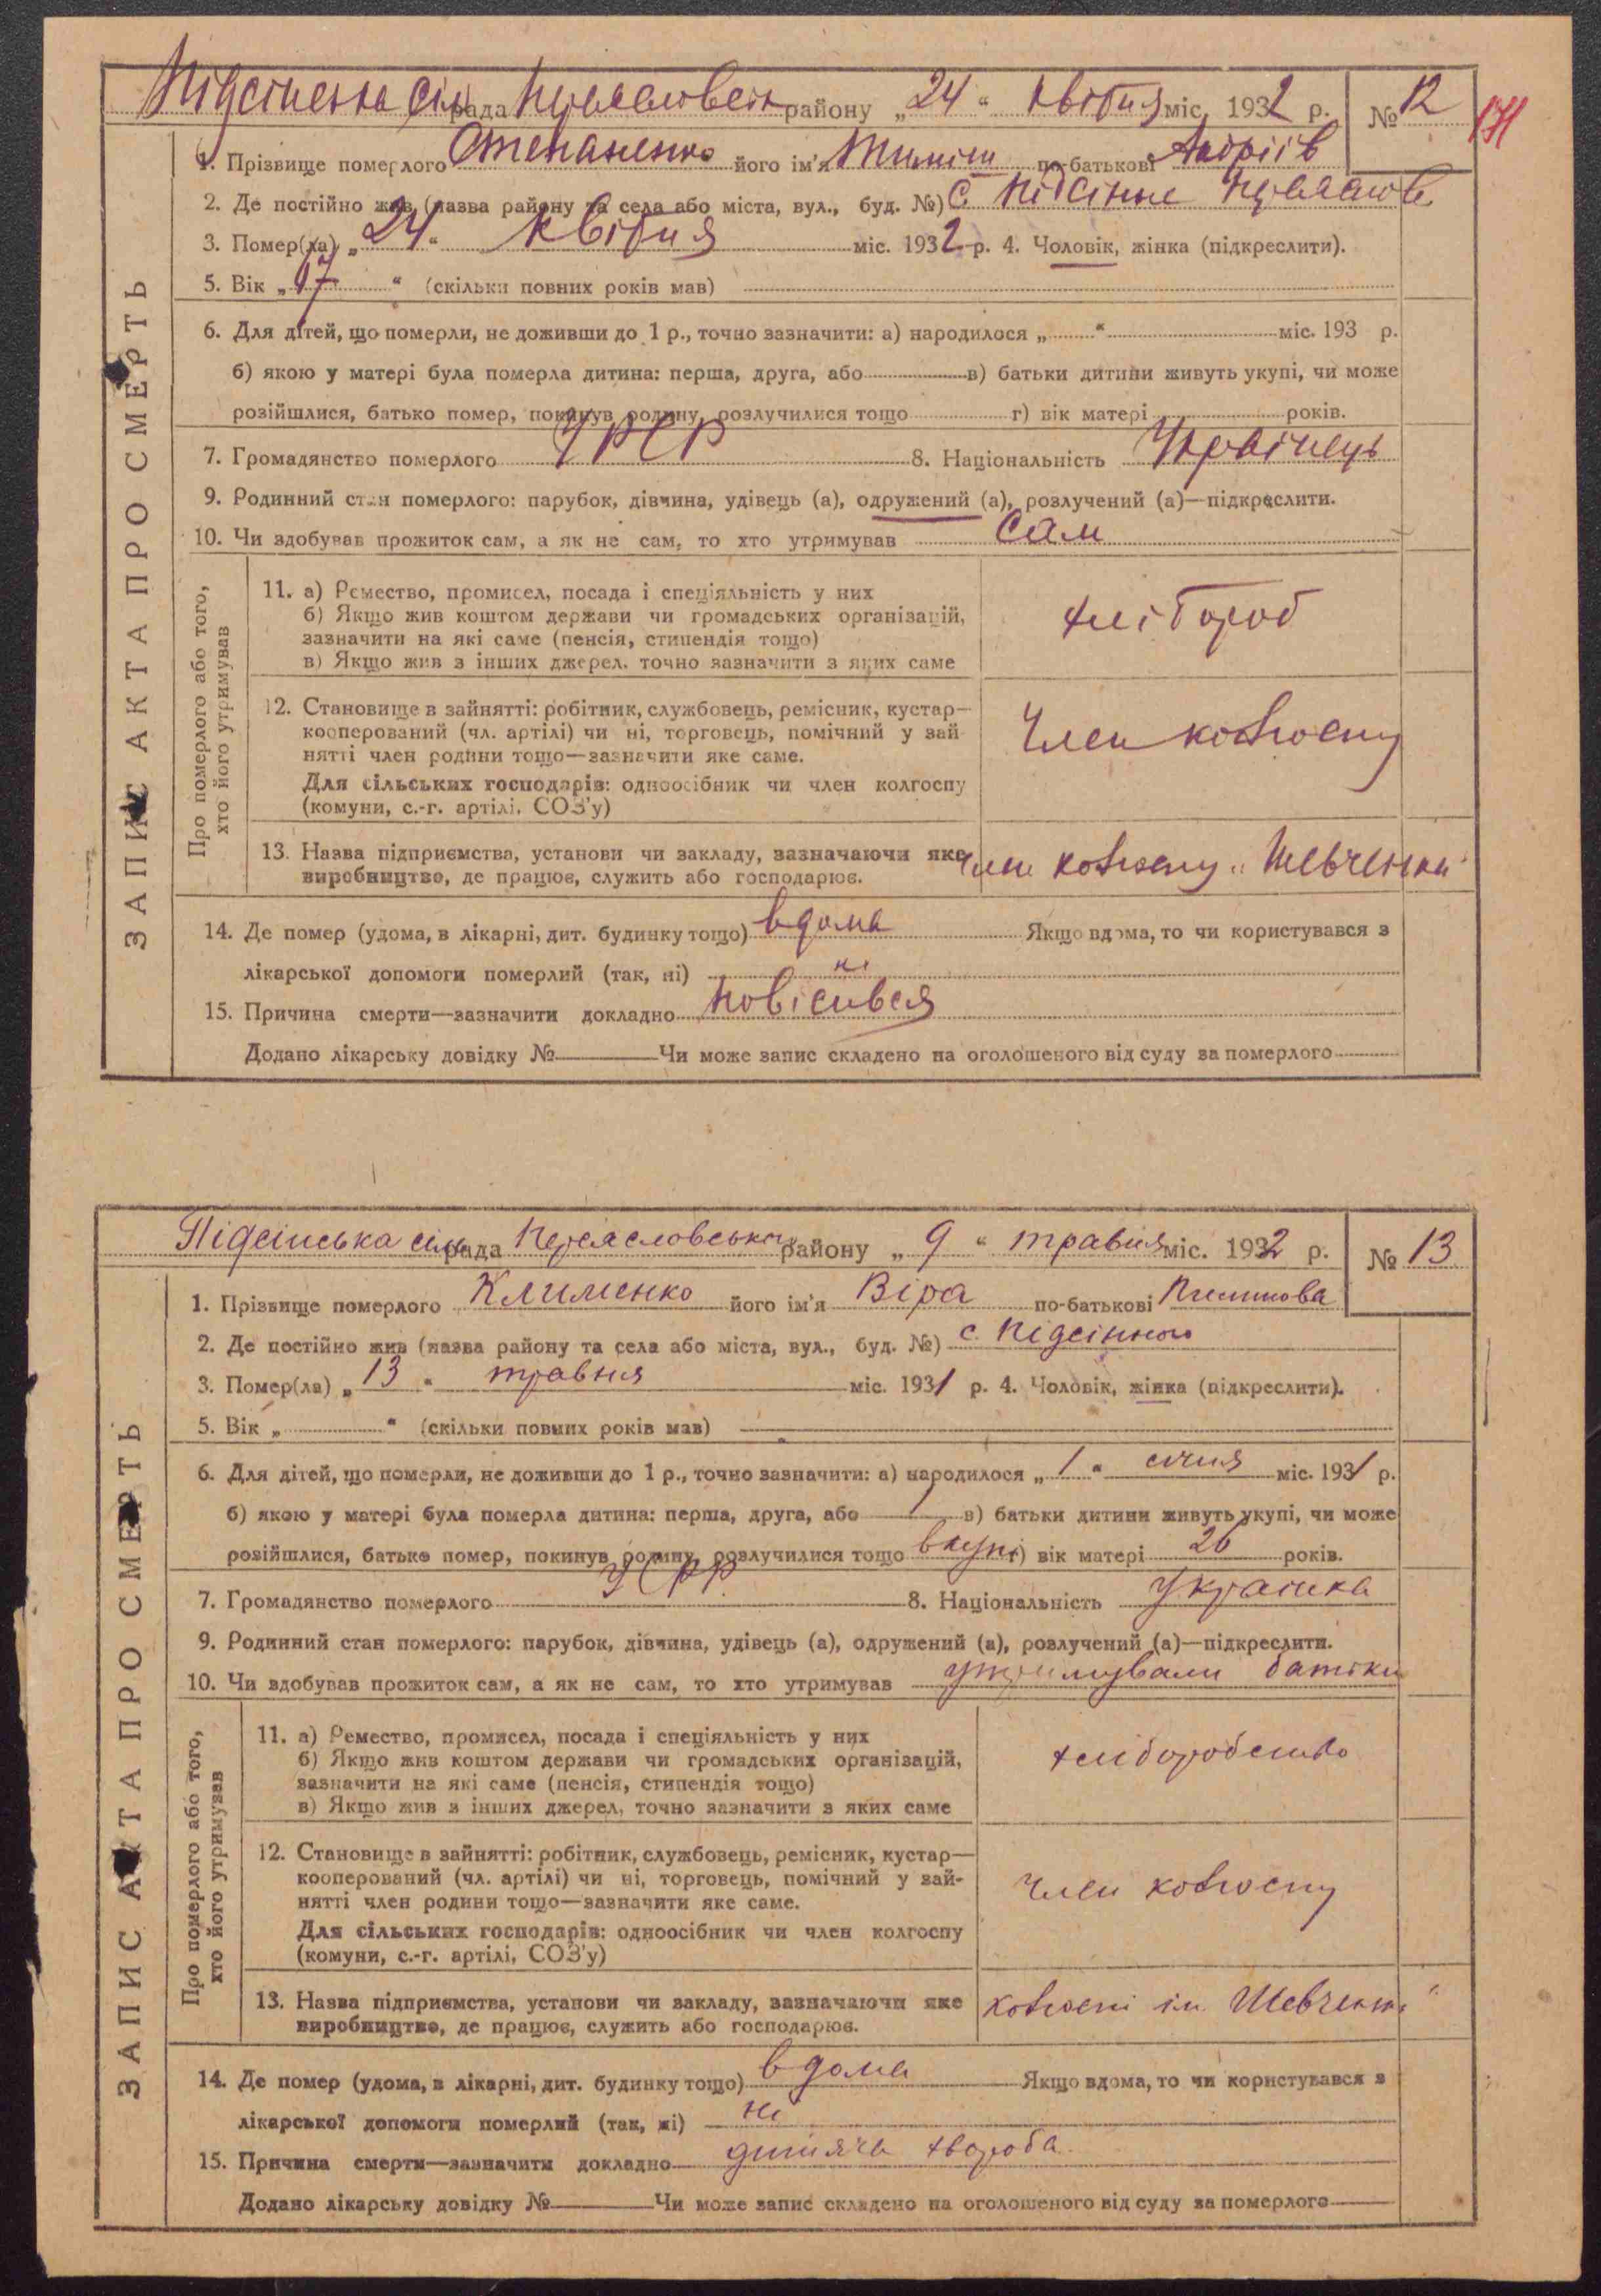 Підсінська сіл рада Переяславськ району „24“ квітня міс. 1932 р. № 12
171
1. Прізвище померлого Степаненко його ім'я Тиміш по-батькові Андріїв
2. Де постійно жив (назва району та села або міста, вул., буд. №) с. Підсінне Переяслов
3. Помер(ла) „24“ квітня міс. 1932 р. 4. Чоловік, жінка (підкреслити).
5. Вік „17“ (скільки повних років мав)
6. Для дітей, що померли, не доживши до 1 р., точно зазначити: а) народилося „ “ міс. 193 р.
б) якою у матері була померла дитина: перша, друга, або в) батьки дитини живуть укупі, чи може
розійшлися, батько помер, покинув родину, розлучилися тощо г) вік матері років.
7. Громадянство померлого УРСР 8. Національність Українець
9. Родинний стан померлого: парубок, дівчина, удівець (а), одружений (а), розлучений (а)—підкреслити.
10. Чи здобував прожиток сам, а як не сам, то хто утримував сам
ЗАПИС АКТА ПРО СМЕРТЬ
Про померлого або того, хто його утримував
11. а) Ремество, промисел, посада і спеціяльність у них
б) Якщо жив коштом держави чи громадських організацій,
зазначити на які саме (пенсія, стипендія тощо)
в) Якщо жив з інших джерел, точно зазначити з яких саме
хлібороб
12. Становище в зайнятті: робітник, службовець, ремісник, кустар—
кооперований (чл. артілі) чи ні, торговець, помічний у зай-
нятті член родини тощо—зазначити яке саме.
Для сільських господарів: одноосібник чи член колгоспу
(комуни, с.-г. артілі, СОЗ'у)
Член колгоспу
13. Назва підприємства, установи чи закладу, зазначаючи яке
виробництво, де працює, служить або господарює.
Член колгоспу „Шевченка“
14. Де помер (удома, в лікарні, дит. будинку тощо) вдома Якщо вдома, то чи користувався з
лікарської допомоги померлий (так, ні) ні
15. Причина смерти—зазначити докладно повісився
Додано лікарську довідку № Чи може запис складено на оголошеного від суду за померлого
Підсінська сіль рада Переясловського району „9“ травня міс. 1932 р. № 13
1. Прізвище померлого Клименко його ім'я Віра по-батькові
2. Де постійно жив (назва району та села або міста, вул., буд. №) с. Підсінного
3. Помер(ла) „13“ травня міс. 1931 р. 4. Чоловік, жінка (підкреслити).
5. Вік „ “ (скільки повних років мав)
6. Для дітей, що померли, не доживши до 1 р., точно зазначити: а) народилося „1“ січня міс. 1931 р.
б) якою у матері була померла дитина: перша, друга, або 1 в) батьки дитини живуть укупі, чи може
розійшлися, батько помер, покинув родину, розлучилися тощо вкупі г) вік матері 26 років.
7. Громадянство померлого УСРР 8. Національність Українка
9. Родинний стан померлого: парубок, дівчина, удівець (а), одружений (а), розлучений (а)—підкреслити.
10. Чи здобував прожиток сам, а як не сам, то хто утримував утримували батьки
ЗАПИС АКТА ПРО СМЕРТЬ
Про померлого або того, хто його утримував
11. а) Ремество, промисел, посада і спеціяльність у них
б) Якщо жив коштом держави чи громадських організацій,
зазначити на які саме (пенсія, стипендія тощо)
в) Якщо жив з інших джерел, точно зазначити з яких саме
хліборобство
12. Становище в зайнятті: робітник, службовець, ремісник, кустар—
кооперований (чл. артілі) чи ні, торговець, помічний у зай-
нятті член родини тощо—зазначити яке саме.
Для сільських господарів: одноосібник чи член колгоспу
(комуни, с.-г. артілі, СОЗ'у)
член колгоспу
13. Назва підприємства, установи чи закладу, зазначаючи яке
виробництво, де працює, служить або господарює.
колгоспі ім. Шевченка
14. Де помер (удома, в лікарні, дит. будинку тощо) вдома Якщо вдома, то чи користувався з
лікарської допомоги померлий (так, ні) ні
15. Причина смерти—зазначити докладно дитяча хвороба
Додано лікарську довідку № Чи може запис складено на оголошеного від суду за померлого